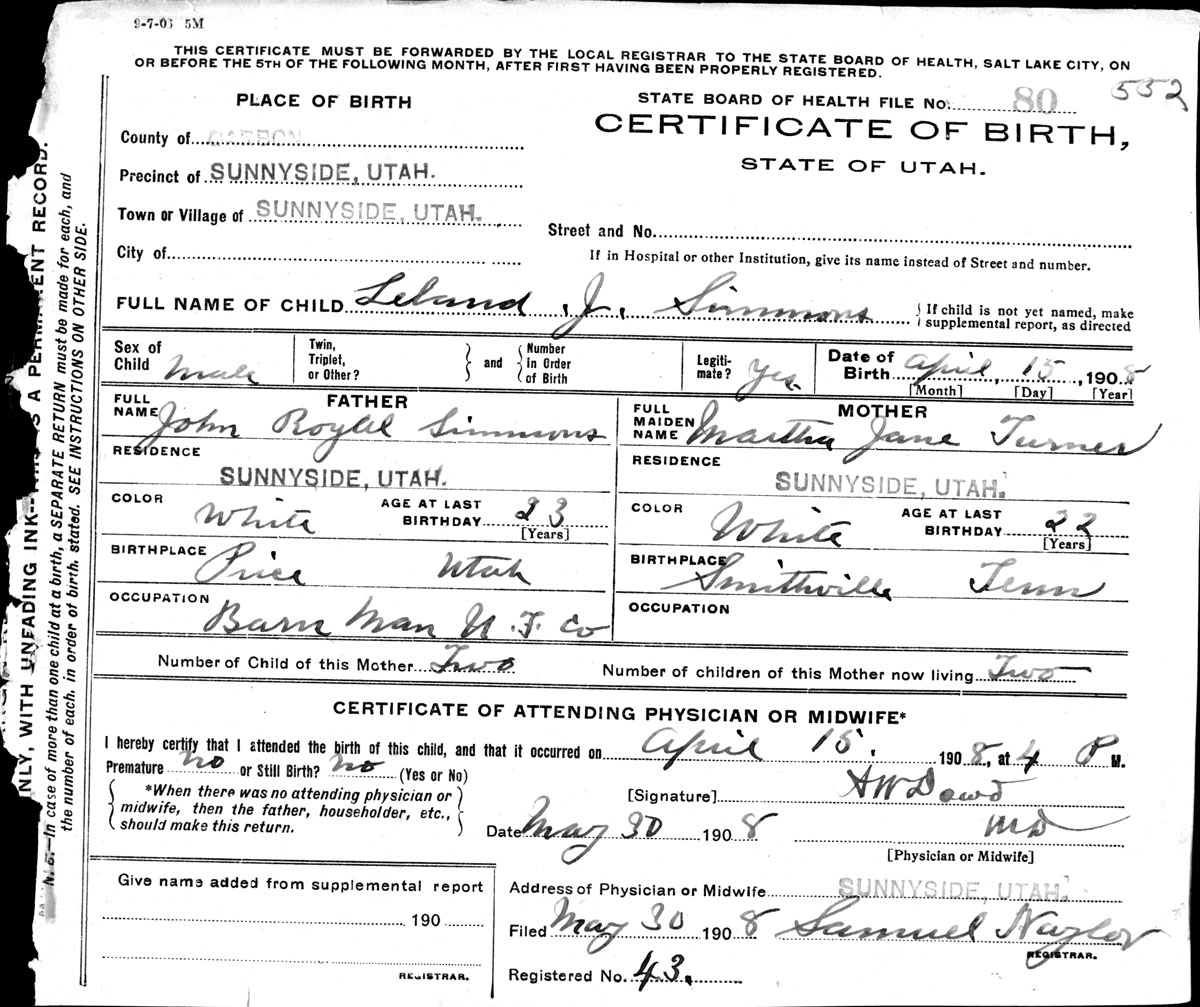 9-7-03 5M
THIS CERTIFICATE MUST BE FORWARDED BY THE LOCAL REGISTRAR TO THE STATE BOARD OF HEALTH, SALT LAKE CITY, ON
OR BEFORE THE 5TH OF THE FOLLOWING MONTH, AFTER FIRST HAVING BEEN PROPERLY REGISTERED.
552
PLACE OF BIRTH
STATE BOARD OF HEALTH FILE No. 80
CERTIFICATE OF BIRTH,
STATE OF UTAH.
County of CARBON
Precinct of SUNNYSIDE, UTAH.
Town or Village of SUNNYSIDE, UTAH.
City of
Street and No.
If in Hospital or other Institution, give its name instead of Street and number.
FULL NAME OF CHILD Leland J. Simmons
If child is not yet named, make
supplemental report, as directed
Sex of Child Male
Twin, Triplet, or Other?
and
Number in Order of Birth
Legiti-mate? Yes.
Date of Birth April, 15, 1908
[Month] [Day] [Year]
FATHER
FULL NAME John Roydl Simmons
RESIDENCE
SUNNYSIDE, UTAH.
COLOR White
AGE AT LAST BIRTHDAY 23
[Years]
BIRTHPLACE Price Utah
OCCUPATION Barn Man U. F. Co
MOTHER
FULL MAIDEN NAME Martha Jane Turner
RESIDENCE
SUNNYSIDE, UTAH.
COLOR White
AGE AT LAST BIRTHDAY 22
[Years]
BIRTHPLACE Smithville Tenn
OCCUPATION
Number of Child of this Mother Two
Number of children of this Mother now living Two
CERTIFICATE OF ATTENDING PHYSICIAN OR MIDWIFE*
I hereby certify that I attended the birth of this child, and that it occurred on April 15, 1908, at 4 P M.
Premature no or Still Birth? no (Yes or No)
*When there was no attending physician or
midwife, then the father, householder, etc.,
should make this return.
[Signature] A W Dowd
Date May 30 1908 MD
[Physician or Midwife]
Give name added from supplemental report
190
REGISTRAR.
Address of Physician or Midwife SUNNYSIDE, UTAH.
Filed May 30 1908 Samuel Naylor
REGISTRAR.
Registered No. 43.
NLY, WITH UNFADING INK—THIS IS A PERMANENT RECORD.
N. B.—In case of more than one child at a birth, a SEPARATE RETURN must be made for each, and
the number of each, in order of birth, stated. SEE INSTRUCTIONS ON OTHER SIDE.